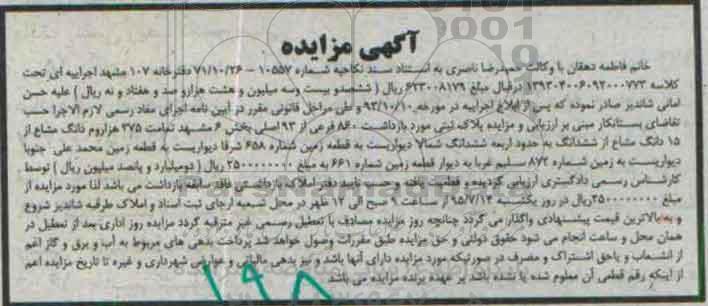 آگهی مزایده
خانم فاطمه دهقان با وکالت حمیدرضا ناصری به استناد سند نکاحیه شماره ۱۰۵۵۷ – ۷۱/۱۰/۲۶ دفترخانه ۱۰۷ مشهد اجراییه ای تحت
کلاسه ۱۳۹۳۰۴۰۰۶۰۹۲۰۰۰۷۷۳ درقبال مبلغ ۶۲۳۰۰۸۱۷۹ ریال ( ششصدو بیست وسه میلیون و هشت هزارو صد و هفتاد و نه ریال ) علیه حسن
امانی شاندیز صادر نموده که پس از ابلاغ اجراییه در مورخه ۹۳/۱۰/۱۰ و طی مراحل قانونی مقرر در آیین نامه اجرای مفاد رسمی لازم الاجرا حسب
تقاضای بستانکار مبنی بر ارزیابی و مزایده پلاک ثبتی مورد بازداشت ۸۶۰ فرعی از ۹۳ اصلی بخش ۶ مشهد تمامت ۳۷۵ هزاروم دانگ مشاع از
۱۵ دانگ مشاع از ششدانگ به حدود اربعه ششدانگ شمالا دیواریست به قطعه زمین شماره ۶۵۸ شرقا دیواریست به قطعه زمین محمد علی جنوبا
دیواریست به زمین شماره ۸۷۲ سلیم غربا به دیوار قطعه زمین شماره ۶۶۱ به مبلغ ۲۵۰۰۰۰۰۰۰۰ ریال ( دومیلیارد و پانصد میلیون ریال ) توسط
کارشناس رسمی دادگستری ارزیابی گردیده و قطعیت یافته و حسب تایید دفتر املاک بازداشتی فاقد سابقه بازداشت می باشد لذا مورد مزایده از
مبلغ ۲۵۰۰۰۰۰۰۰۰ریال در روز یکشنبه ۹۵/۷/۱۴ از ساعت ۹ صبح الی ۱۲ ظهر در محل شعبه اجرای ثبت اسناد و املاک طرقبه شاندیز شروع
و به بالاترین قیمت پیشنهادی واگذار می گردد چنانچه روز مزایده مصادف با تعطیل رسمی غیر مترقبه گردد مزایده روز اداری بعد از تعطیل در
همان محل و ساعت انجام می شود حقوق دولتی و حق مزایده طبق مقررات وصول خواهد شد پرداخت بدهی های مربوط به آب و برق و گاز اعم
از انشعاب و یاحق اشتراک و مصرف در صورتیکه مورد مزایده دارای آنها باشد و نیز بدهی مالیاتی و عوارض شهرداری و غیره تا تاریخ مزایده اعم
از اینکه رقم قطعی آن معلوم شده یا نشده باشد بر عهده برنده مزایده می باشد
۱۹۸